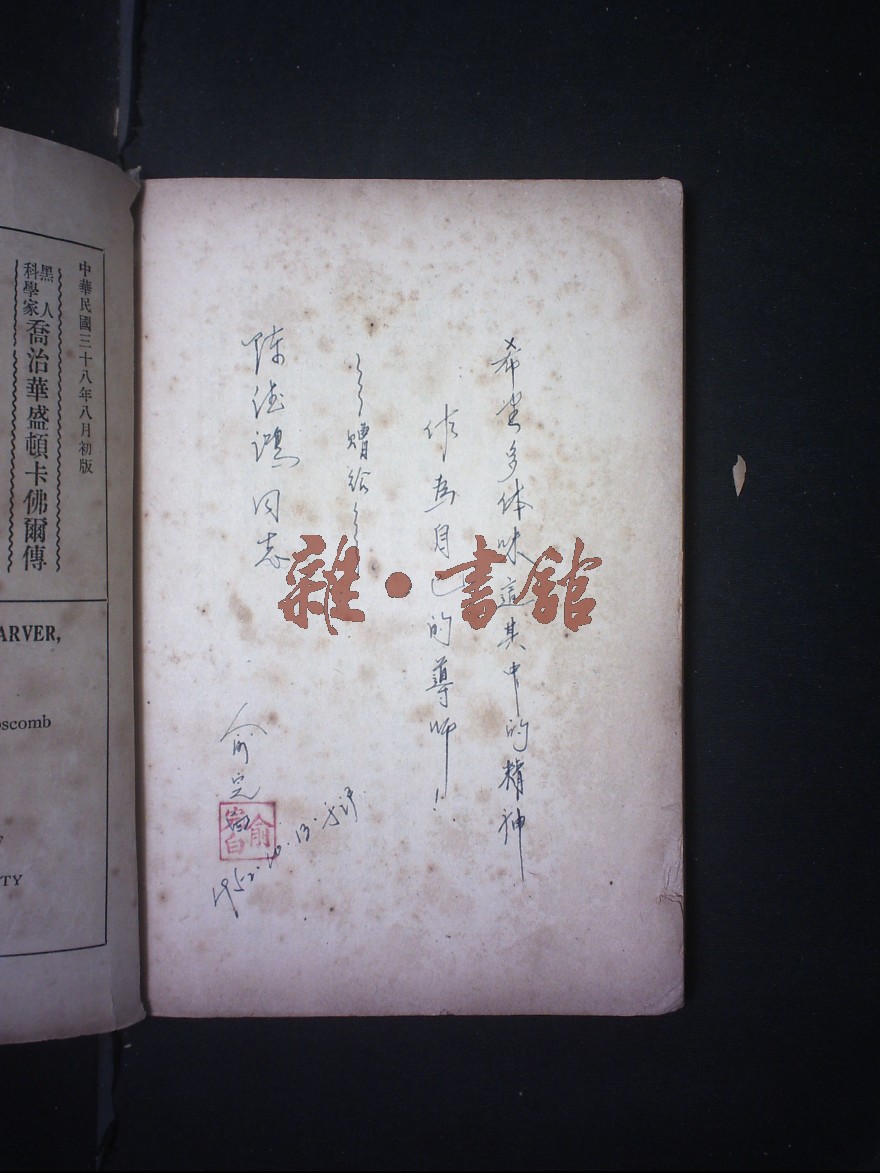 希望多体味這其中的精神
作為自己的導师！
～～贈给～～
陈德鴻同志
俞
1952.10.13.
俞
白
雜·書館
中華民國三十八年八月初版
黑人科學家喬治華盛頓卡佛爾傳
ARVER,
oscomb
TY